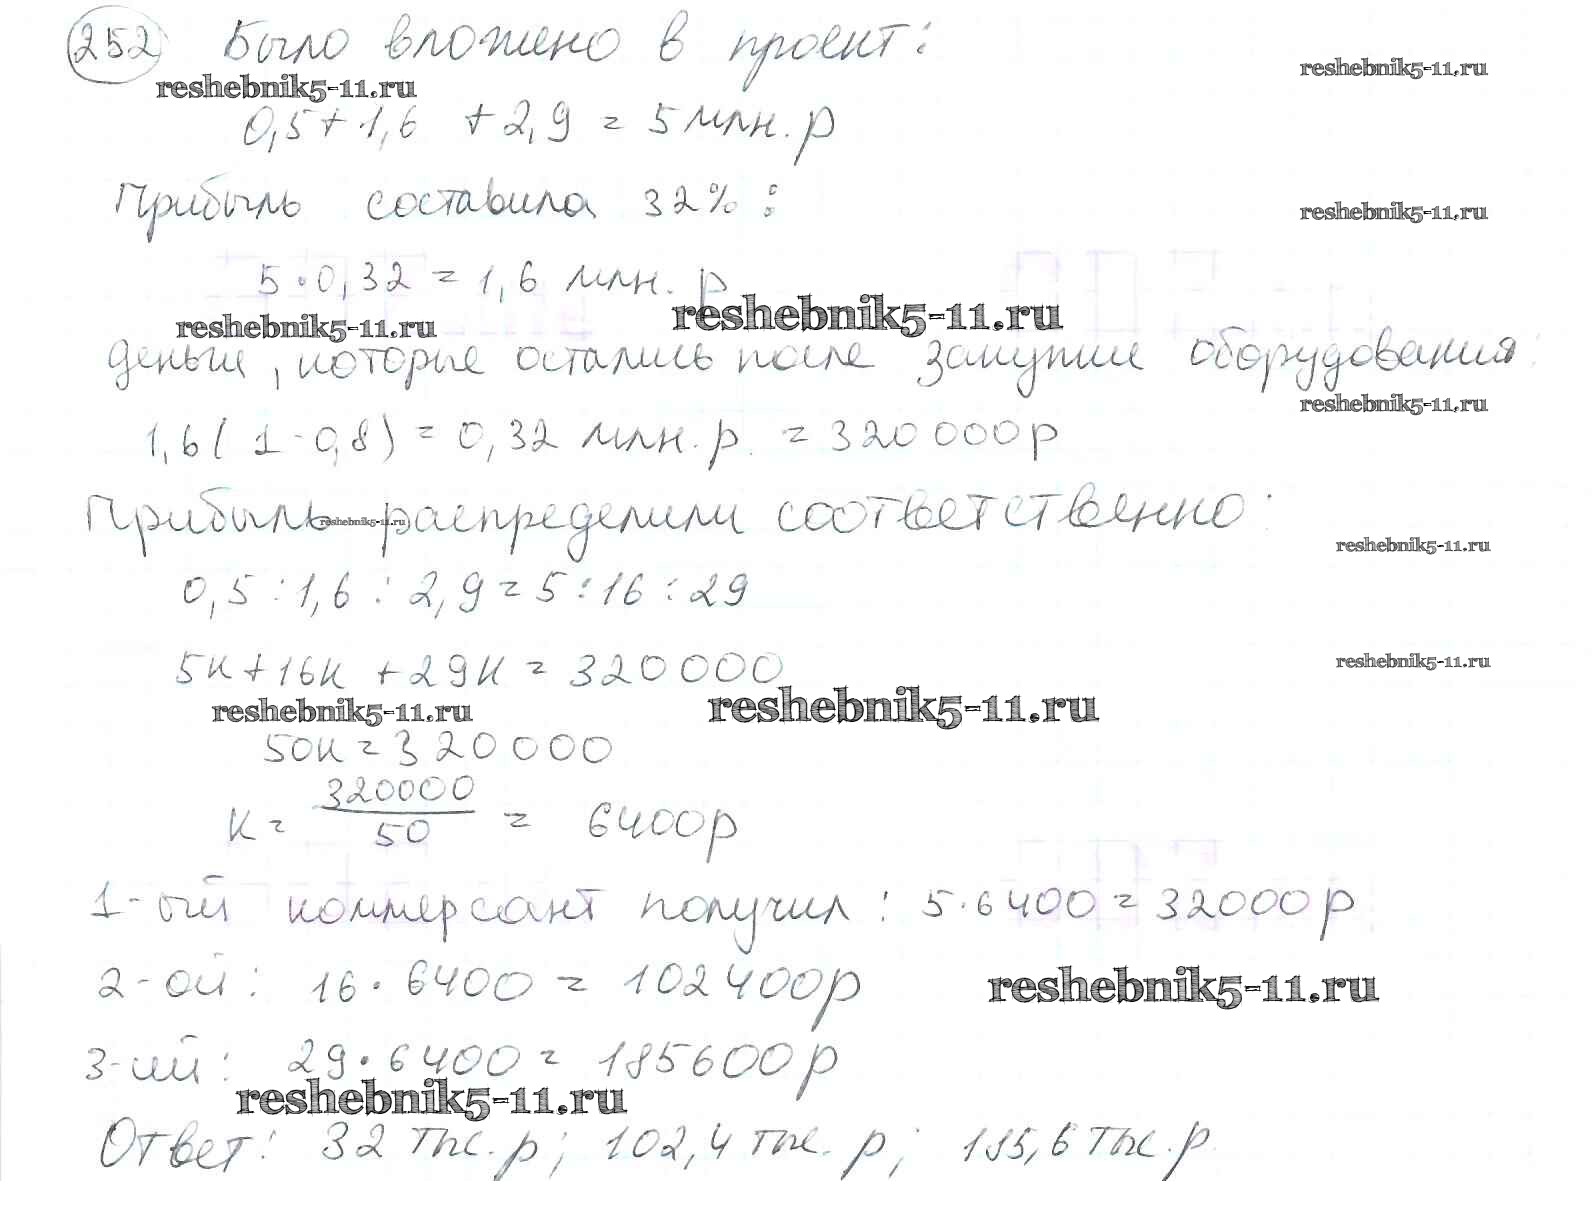 252 Было вложено в проект:
reshebnik5-11.ru
reshebnik5-11.ru
0,5 + 1,6 + 2,9 = 5 млн. р
Прибыль составила 32%:
reshebnik5-11.ru
5 · 0,32 = 1,6 млн. р
reshebnik5-11.ru
reshebnik5-11.ru
деньги, которые остались после закупки оборудования:
reshebnik5-11.ru
1,6 ( 1 - 0,8) = 0,32 млн. р. = 320 000р
Прибыль распределили соответственно:
reshebnik5-11.ru
reshebnik5-11.ru
0,5 : 1,6 : 2,9 = 5 : 16 : 29
5к + 16к + 29к = 320 000
reshebnik5-11.ru
reshebnik5-11.ru
reshebnik5-11.ru
50к = 320 000
к = 320000/50 = 6400р
1-ый коммерсант получил: 5 · 6400 = 32000р
2-ой: 16 · 6400 = 102400р
reshebnik5-11.ru
3-ий: 29 · 6400 = 185600р
reshebnik5-11.ru
Ответ: 32 тыс. р; 102,4 тыс. р; 185,6 тыс. р.